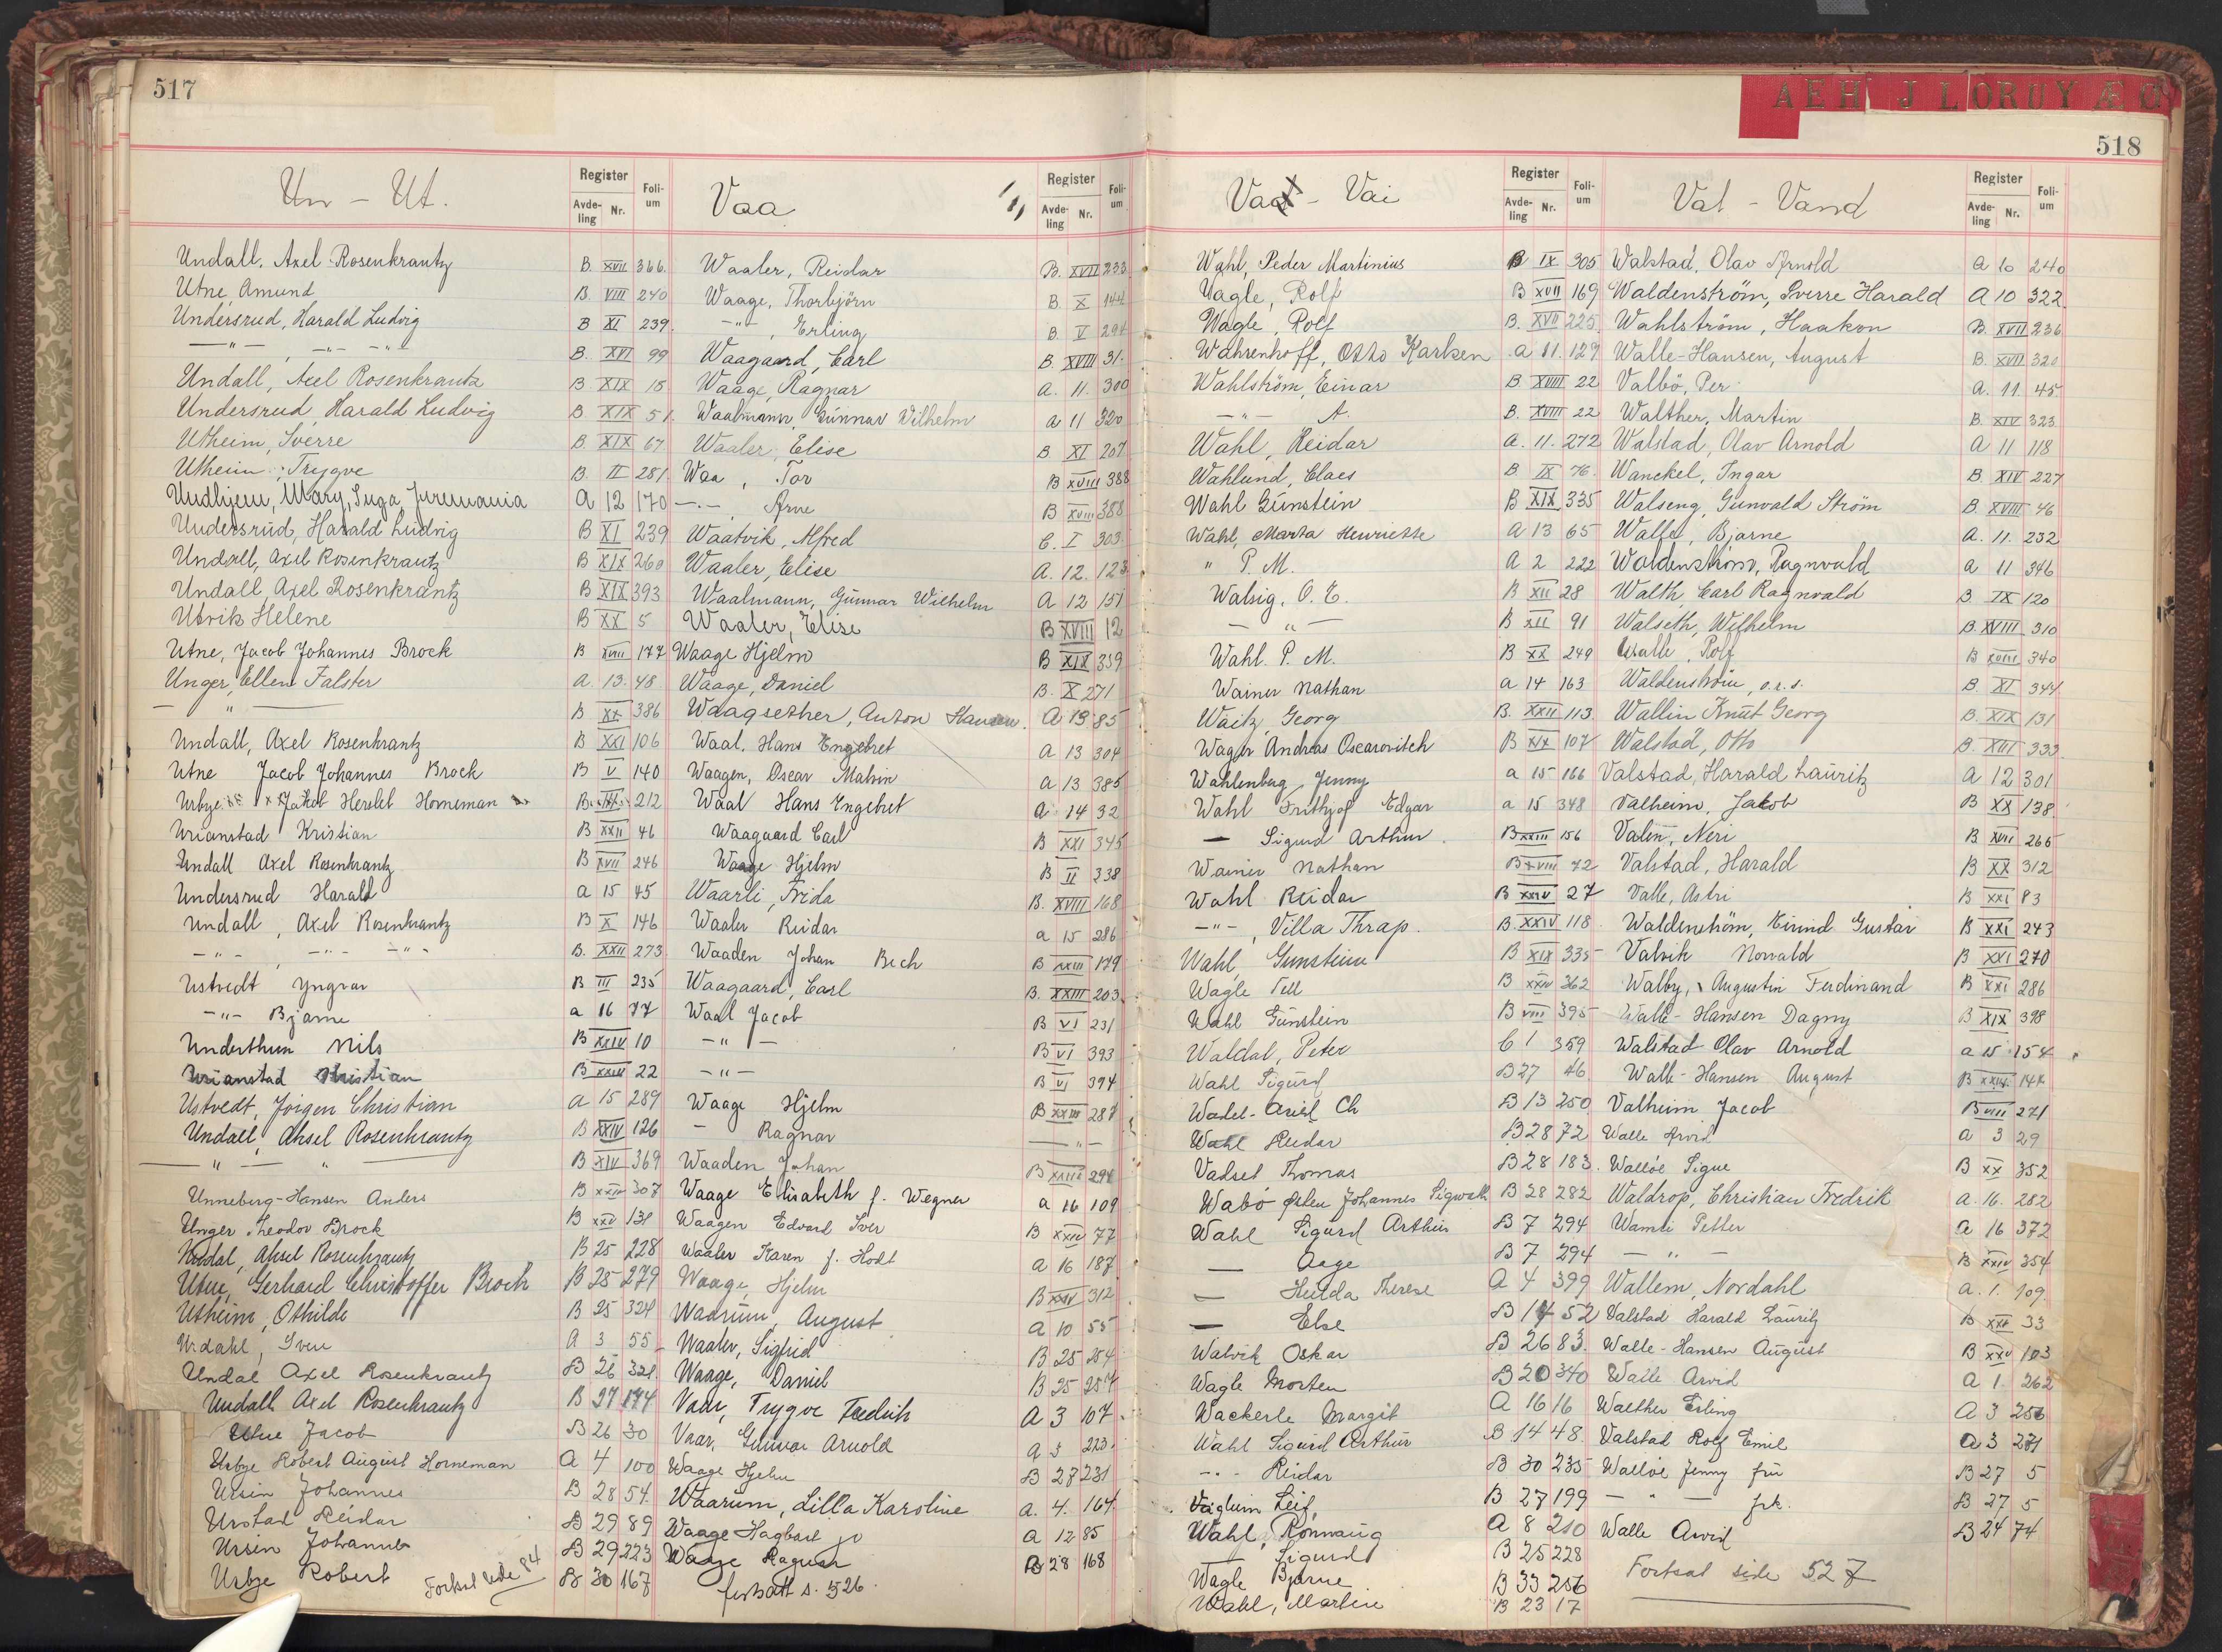 517
Un - Ut.
Register
Foli-
um
Avde-
ling
Nr.
Undall. Axel Rosenkrantz B. XVII 366.
Utne, Amund B. VIII 240
Undersrud, Harald Ludvig B XI 239.
—"— , —"— —"— B. XVI 99
Undall, Axel Rosenkrantz B XIX 18
Undersrud, Harald Ludvig B XIX 51.
Utheim, Sverre B. XIX 67.
Utheim, Trygve B. II 281
Undhjem, Mary, Inga, A 12 170
Undersrud, Harald Ludvig B XI 239
Undall, Axel Rosenkrantz B XIX 260
Undall, Axel Rosenkrantz B XIX 393
Utvik Helene B XX 5
Utne, Jacob Johannes Brock B XVIII 177
Unger, Ellen Falster A. 13. 48.
— " — B XX 386
Undall, Axel Rosenkrantz B XXI 106
Utne Jacob Johannes Brock B V 140
Urbye Jakob Herslet Horneman B 212
Urianstad Kristian B XXII 46
Undall Axel Rosenkrantz B XVII 246
Undersrud Harald a 15 45
Undall, Axel Rosenkrantz B X 146
—"— —"— —"— B. XXII 273
Ustvedt Yngvar B III 235
—"— Bjarne a 16 77
Underthun Nils B XXIV 10
Urianstad Kristian B XXIII 22
Ustvedt, Jörgen Christian a 15 289
Undall, Aksel Rosenkrantz B XXIV 126
— " — " — B XIV 369
Unneberg-Hansen Anders B XXIV 307
Unger Theodor Brock B XXV 131
Undal, Aksel Rosenkrantz B 25 228
Utne, Gerhard Christoffer Brock B 25 279
Utheim, Othilde B 25 324
Udahl, Iver A 3 55
Undal Axel Rosenkrantz B 26 321
Undall Axel Rosenkrantz B 27 174
Utne Jacob B 26 30
Urbye Robert August Horneman A 4 100
Ursin Johannes B 28 54.
Urstad Reidar B 29 89
Ursin Johannes B 29 223
Urbye Robert B 30 167
Fortsat side 84
Vaa
Register
Foli-
um
Avde-
ling
Nr.
Waaler, Reidar B. XVII 233
Waage, Thorbjörn B. X 144
—"— , Erling B. V 294
Waagaard, Carl B. XVIII 31.
Waage, Ragnar A. 11. 300
Waalmann, Gunnar Wilhelm a 11 320
Waaler, Elise B XI 207
Waa, Tor B XVIII 388
—"— Arne B XVIII 388
Waatvik, Alfred C. I 303
Waaler, Elise A. 12. 123
Waalmann, Gunnar Wilhelm A 12 151
Waaler, Elise B XVIII 12
Waage Hjelm B XIX 339
Waage, Daniel B. X 271
Waagsether, Anton Hansen. A 13 85
Waal, Hans Engebret A 13 304
Waagen, Oscar Malvin a 13 385
Waal Hans Engebret a 14 32
Waagaard Carl B XXI 345
Waage Hjelm B II 338
Waarli, Frida B. XVIII 168
Waaler Reidar a 15 286
Waaden Johan Bech B XXIII 179
Waagaard, Carl B. XXIII 203
Waal Jacob B VI 231
—"— B VI 393
—"— B VI 394
Waage Hjelm B XXIII 287
— Ragnar — " —
Waaden Johan B XXIII 294
Waage Elisabeth f. Wegner a 16 109
Waagen Edvard Iver B XXIV 77
Waaler Karen f. Holt a 16 187
Waage, Hjelm B XXIV 312
Waarum, August A 10 55
Waaler, Sigfrid B 25 254
Waage, Daniel B 25 257
Vaar, Trygve Fredrik A 3 107
Vaar, Gunnar Arnold a 3 223.
Waage Hjelm B 28 231
Waarum, Lilla Karoline A. 4. 164
Waage Hagbart a 12 85
Waage Ragnar B 28 168
fortsatt s. 526.
AEH J L ORUY Æ Ø
518
Vaa - Vai
Register
Foli-
um
Avde-
ling
Nr.
Wahl, Peder Martinius B IX 305
Vagle, Rolf B XVII 169
Wagle, Rolf B. XVII 225.
Wahrenhoff, Otto Karsten a 11. 129
Wahlström, Einar B. XVIII 22
—"— A. B. XVIII 22
Wahl, Reidar A. 11. 272
Wahlund, Claes B IX 76.
Wahl Gunstein B XIX 335
Wahl, Marta Henriette A 13 65
" P. M. A 2 222
Walsig, O. E. B XII 28
— " — B XII 91
Wahl. P. M. B XX 249
Wainer Nathan a 14 163
Waitz, Georg B. XXII 113
Wager Andreas Oscarovitch B XIX 107
Wahlenberg, Jenny a 15 166
Wahl Frithjof Edgar a 15 348
— Sigurd Arthur. B XXIII 156
Wainer Nathan B XVIII 72
Wahl Reidar B XXIV 27
—"—, Villa Thrap. B. XXIV 118
Wahl, Gunstein B XIX 335
Wagle Pell B XXIV 362
Wahl Gunstein B VIII 395
Waldal, Peter C 1 359
Wahl Sigurd B 27 46
Wadel-Ariel Ch B 13 250
Wahl Reidar B 28 72
Vadset Thomas B 28 183.
Wabö Johannes Sigwath B 28 282
Wahl Sigurd Arthur B 7 294
— Aage B 7 294
— Hulda Therese A 4 399
— Else B 14 52
Walvik Oskar B 26 83.
Wagle Morten B 20 340
Wackerle Margit A 16 16
Wahl Sigurd Arthur B 14 48.
—"— Reidar B 30 235
Vägheim Leif, B 27 199
Wahl, Rönnaug A 8 210
— Sigurd B 25 228
Wagle Bjarne B 33 256
Wahl, Martin B 23 17
Val - Vand
Register
Foli-
um
Avde-
ling
Nr.
Walstad, Olav Arnold a 10 240
Waldenström, Sverre Harald A 10 322
Wahlström, Haakon B. XVII 236
Walle-Hansen, August B. XVII 320
Valbö, Per A. 11. 45.
Walther, Martin B. XIV 323
Walstad, Olav Arnold A 11 118
Wanckel, Ingar B. XIV 227
Walseng, Gunvald Strøm B. XVIII 46
Walle, Bjarne A. 11. 232
Waldenstrøm, Ragnvald a 11 346
Walth Carl Ragnvald B IX 120
Walseth, Wilhelm B. XVIII 310
Walle, Rolf B XVIII 340
Waldenström, o.r.s. B. XI 344
Wallin Knut Georg B. XIX 131
Walstad, Otto B. XIII 333
Valstad, Harald Lauritz A 12 301
Valheim, Jakob B XX 138
Valen, Neri B XVII 265
Valstad, Harald B XX 312
Valle, Astri B XXI 83
Waldenström, Eirind Gustav B XXI 243
Valvik Norvald B XXI 270
Walby, Augustin Ferdinand B XXI 286
Walle-Hansen Dagny B XIX 398
Walstad Olav Arnold a 15 154
Walle-Hansen August B XXIII 147
Valheim Jacob B VIII 271
Walle Arvid A 3 29
Walløe Signe B XX 352
Waldrop, Christian Fredrik A. 16. 282
Wamli Petter a 16 372
— " — B XXIV 354
Wallem, Nordahl A. 1. 109.
Valstad Harald Lauritz B XXV 33
Walle-Hansen August B XXV 103
Walle Arvid A 1. 262
Walther Erling A 3 256
Valstad Rolf Emil A 3 271
Walløe Jenny fru B 27 5
— " — frk. B 27 5
Walle Arvid B 24 74
Fortsat side 527